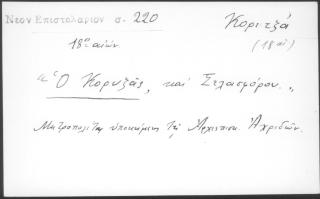 Νεον Επιστολάριον σ. 220 Κοριτζά
18ος αιών (18 αἰ)
"Ὁ Κορυζᾶς, καί Σελασφόρου."
Μητροπολίτης ὑποκείμενος τῷ Ἀρχιεπισκ. Ἀχριδῶν.